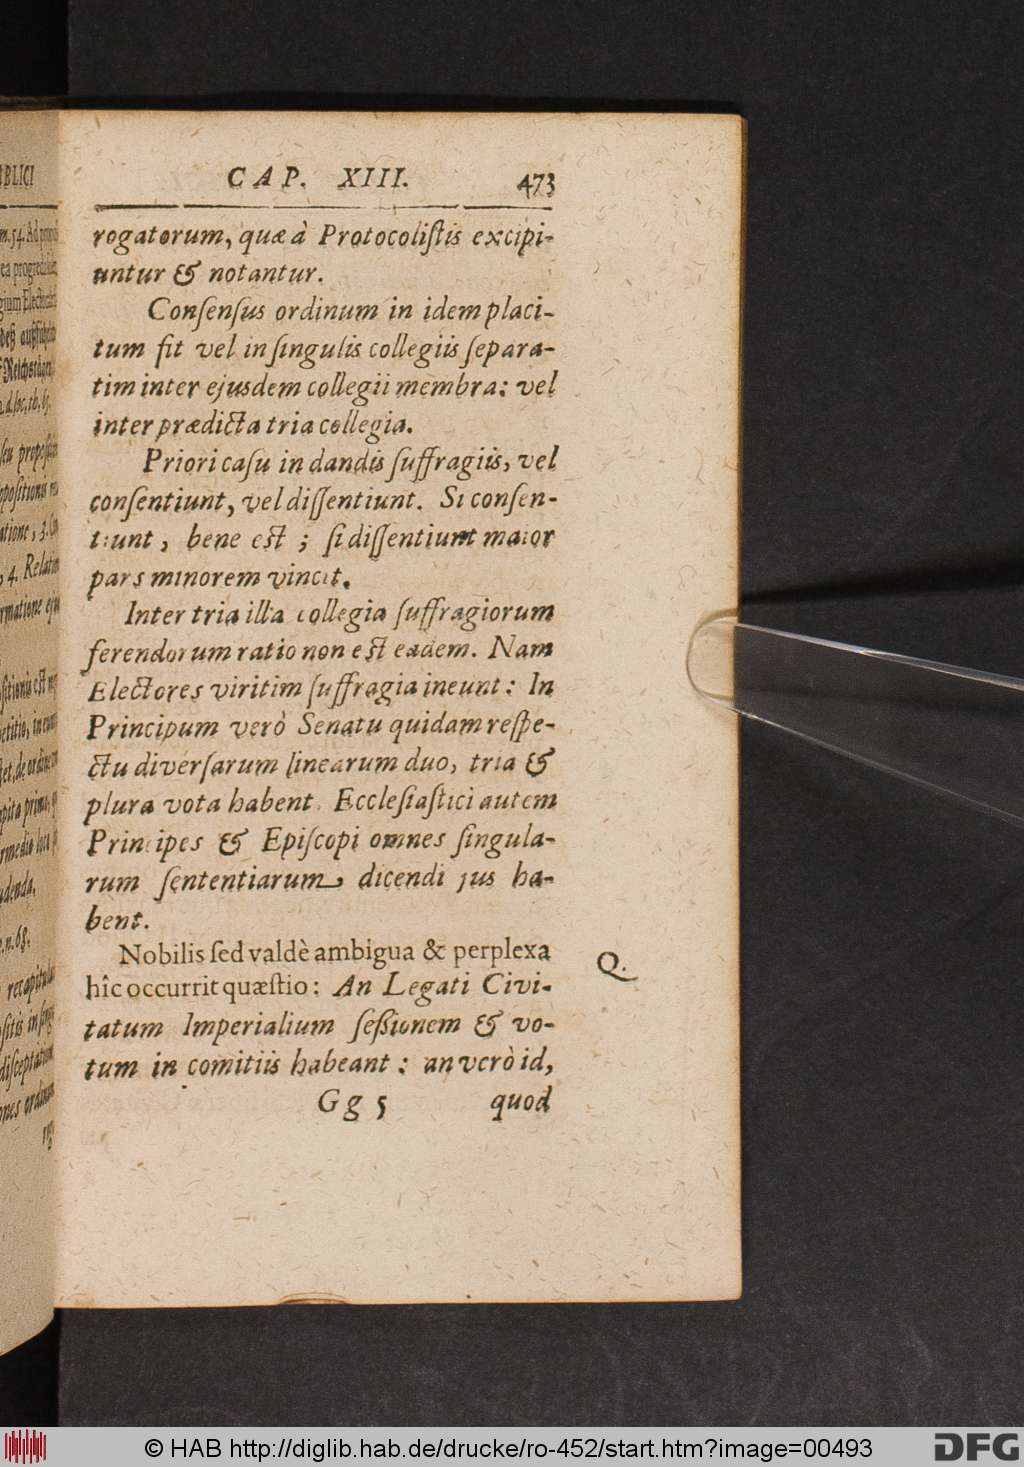 CAP. XIII. 473
rogatorum, quæ à Protocoliſtis excipi-
untur & notantur.
Conſenſus ordinum in idem placi-
tum fit vel in ſingulis collegiis ſepara-
tim inter ejusdem collegii membra: vel
inter prædicta tria collegia.
Priori caſu in dandis ſuffragiis, vel
conſentiunt, vel diſſentiunt. Si conſen-
tiunt, bene eſt; ſi diſſentiunt maior
pars minorem vincit.
Inter tria illa collegia ſuffragiorum
ferendorum ratio non eſt eadem. Nam
Electores viritim ſuffragia ineunt: In
Principum verò Senatu quidam reſpe-
ctu diverſarum linearum duo, tria &
plura vota habent. Eccleſiaſtici autem
Principes & Epiſcopi omnes ſingula-
rum ſententiarum dicendi jus ha-
bent.
Nobilis ſed valdè ambigua & perplexa
hîc occurrit quæſtio: An Legati Civi-
Q.
tatum Imperialium ſeßionem & vo-
tum in comitiis habeant: an verò id,
Gg 5 quod
© HAB http://diglib.hab.de/drucke/ro-452/start.htm?image=00493
DFG